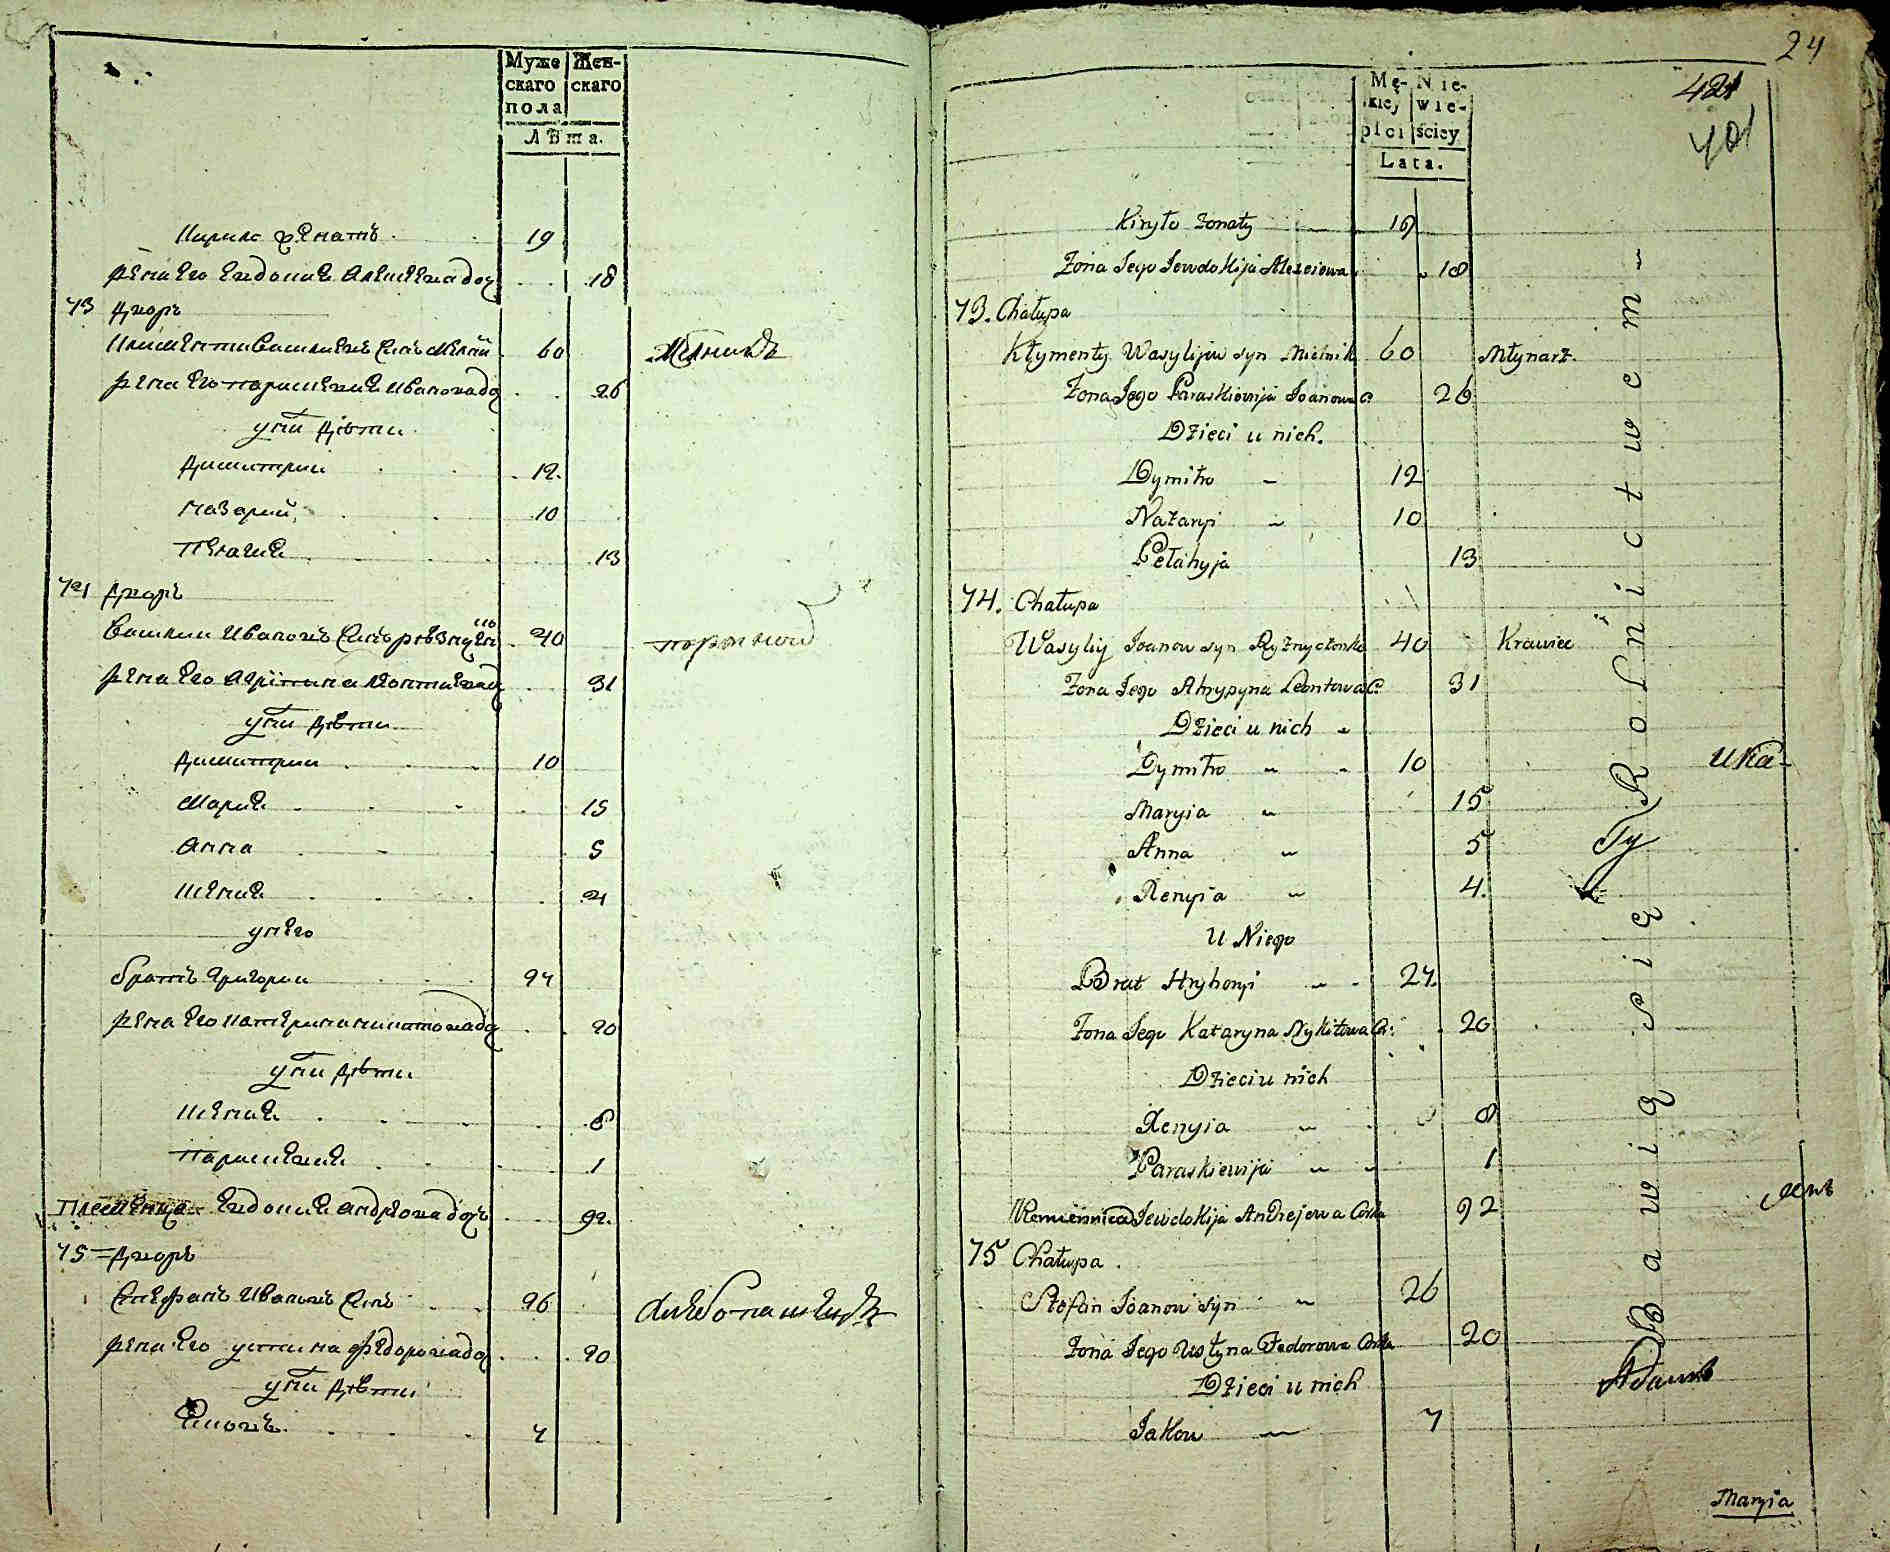 Муже
скаго
пола
Жен-
скаго
Лѣта.
Кирило женатъ 19
жена его Евдокия Алексеева доч 18
73 Дворъ
Климентий Василиевъ синъ 60 Мелникъ
жена его Параскевия Иванова до 26
у них дѣти
Димитрий 12.
Назарий 10
Пелагия 13
74 Дворъ
Василий Ивановъ синъ 40 портной
жена его Агрипина Леонтиева 31
у них дѣти
Димитрий 10
Мария 15
Анна 5
Ксения 4
у него
братъ Григорий 24
жена его Катерина Никитова до 20
у них дѣти
Ксения 8
Параскевия 1
племеница Евдокия Андреова дочь 92.
75 Дворъ
Стефанъ Ивановъ синъ 26 хлебопашецъ
жена его Устина Федорова до 20
у них дѣти
Яковъ 7
24
421
401
Mę-
kiey
płci
Nie-
wie-
ściey
Lata.
Kiryło żonaty 19
Żona Jego Jewdokija Alexeiowa 18
73. Chałupa
Kłymenty Wasylijow syn Mielnik 60 Młynarz
Żona Jego Paraskiewija Joanowa C. 26
Dzieci u nich.
Dymitro 12
Nazaryi 10
Pełahyja 13
74. Chałupa
Wasylij Joanow syn 40 Krawiec
Żona Jego Ahrypyna Leontowa C. 31
Dzieci u nich
Dymitro 10
Maryia 15
Anna 5
Xenyia 4.
U Niego
Brat Hryhoryi 24.
Żona Jego Kataryna Nykitowa C. 20
Dzieci u nich
Xenyia 8
Paraskiewija 1
Plemiennica Jewdokija Andrejewa Córka 92
75 Chałupa
Stefan Joanow syn 26
Żona Jego Ustyna Fedorowa Córka 20
Dzieci u nich
Jakow 7
Bawią się Rolnictwem
Ty
Maryia